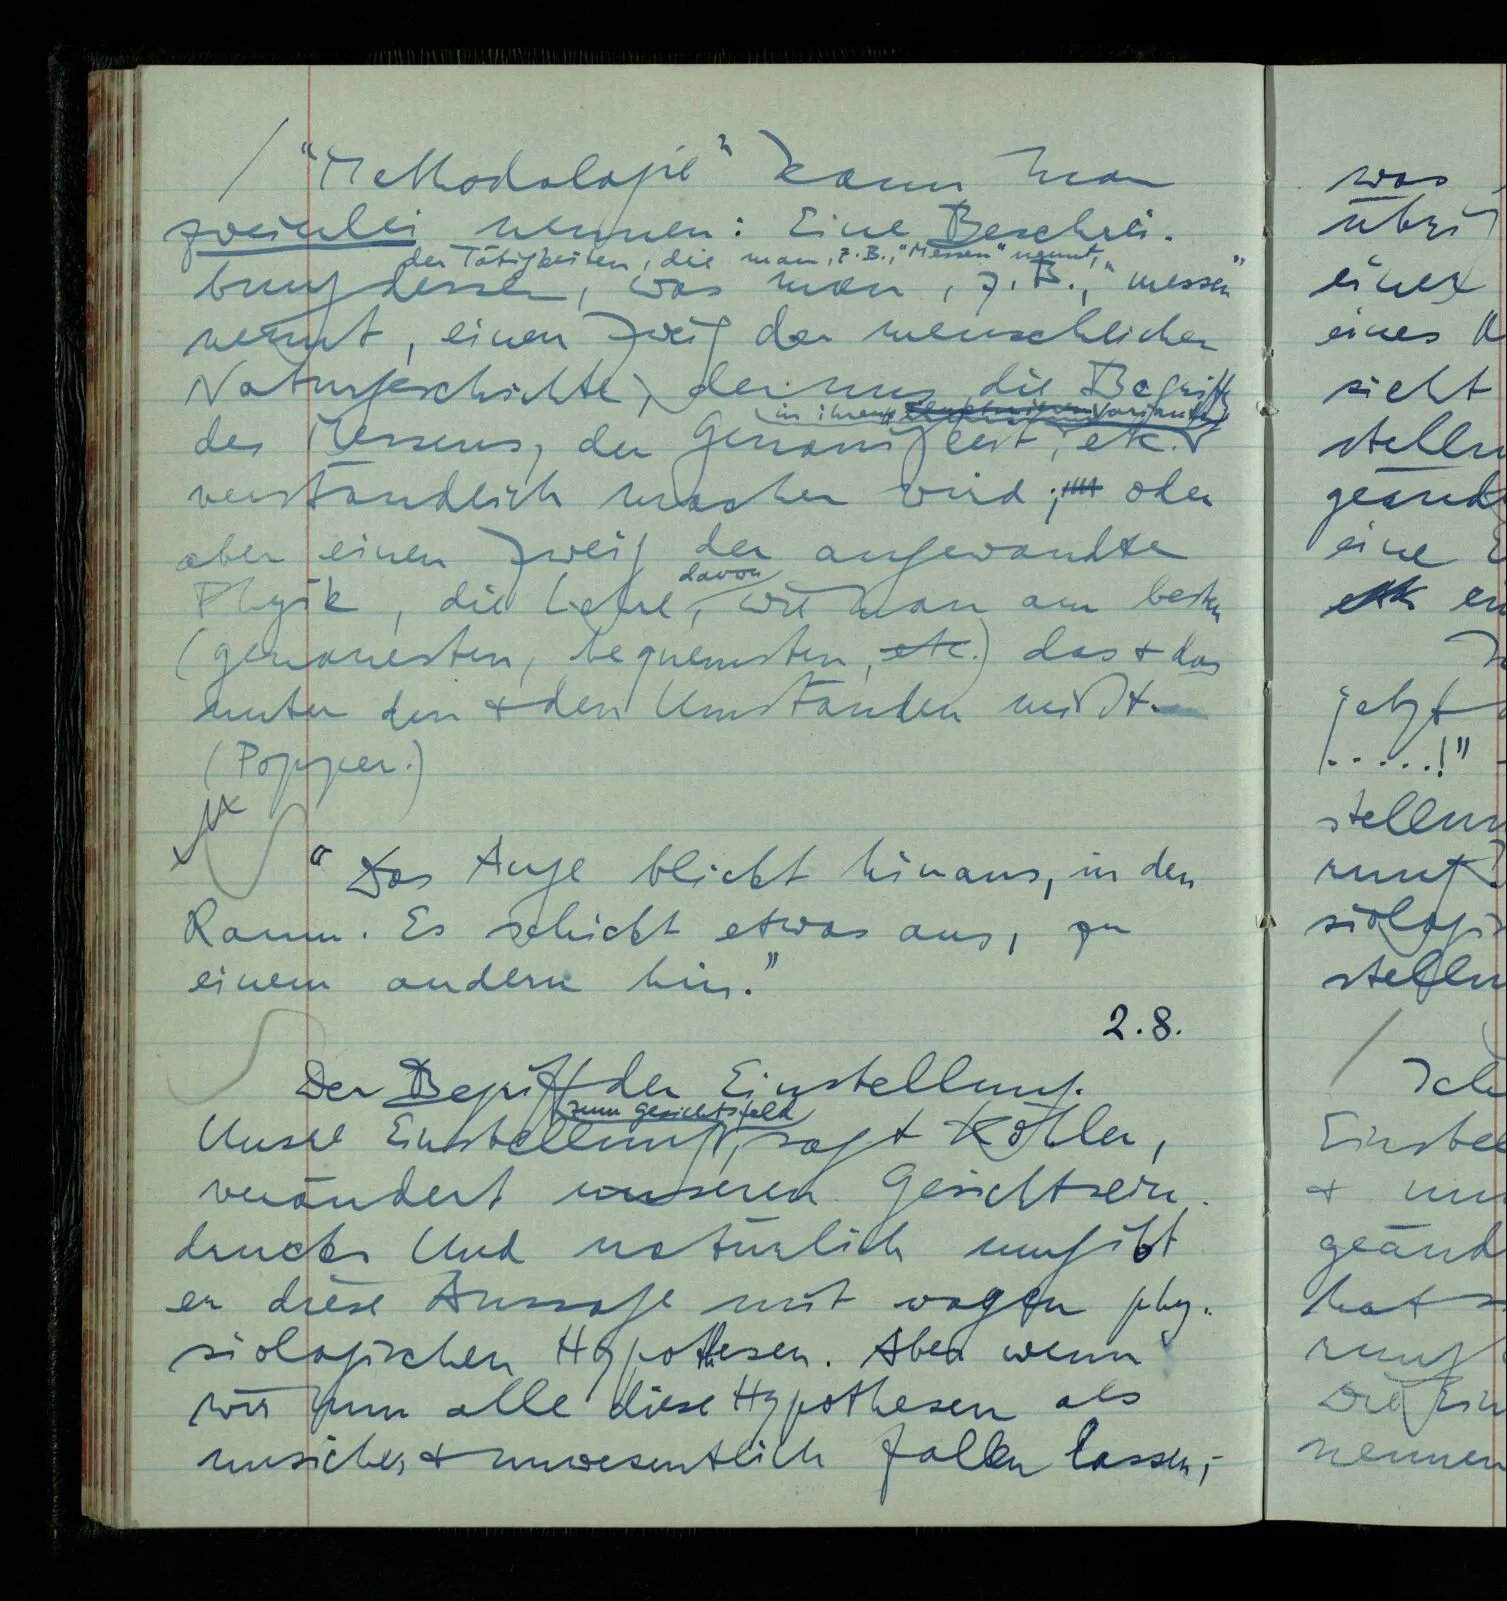 / "Methodologie" kann man
zweierlei nennen: Eine Beschrei-
der Tätigkeiten, die man, z.B., "Messen" nennt,
bung dessen, was man, z.B., "messen"
nennt, einen Zweig der menschlichen
Naturgeschichte, der uns die Begriffe
in ihren Varianten
des Messens, der Genauigkeit, etc.
verständlich machen wird; oder
aber einen Zweig der angewandten
Physik, die Lehre, davon wie man am besten
(genauesten, bequemsten, etc.) das + das
unter den + den Umständen mißt.
(Popper.)
"Das Auge blickt hinaus, in den
Raum. Es schickt etwas aus, zu
einem andern hin."
2.8.
Der Begriff der Einstellung.
zum Gesichtsfeld
Unsre Einstellung, sagt Köhler,
verändert unseren Gesichtsein-
druck. Und natürlich umgibt
er diese Aussage mit vagen phy-
siologischen Hypothesen. Aber wenn
wir nun alle diese Hypothesen als
unsicher + unwesentlich fallen lassen,-
was
einer
eines
sieht
eine
jetzt
.....!"
Ich
+
nennen